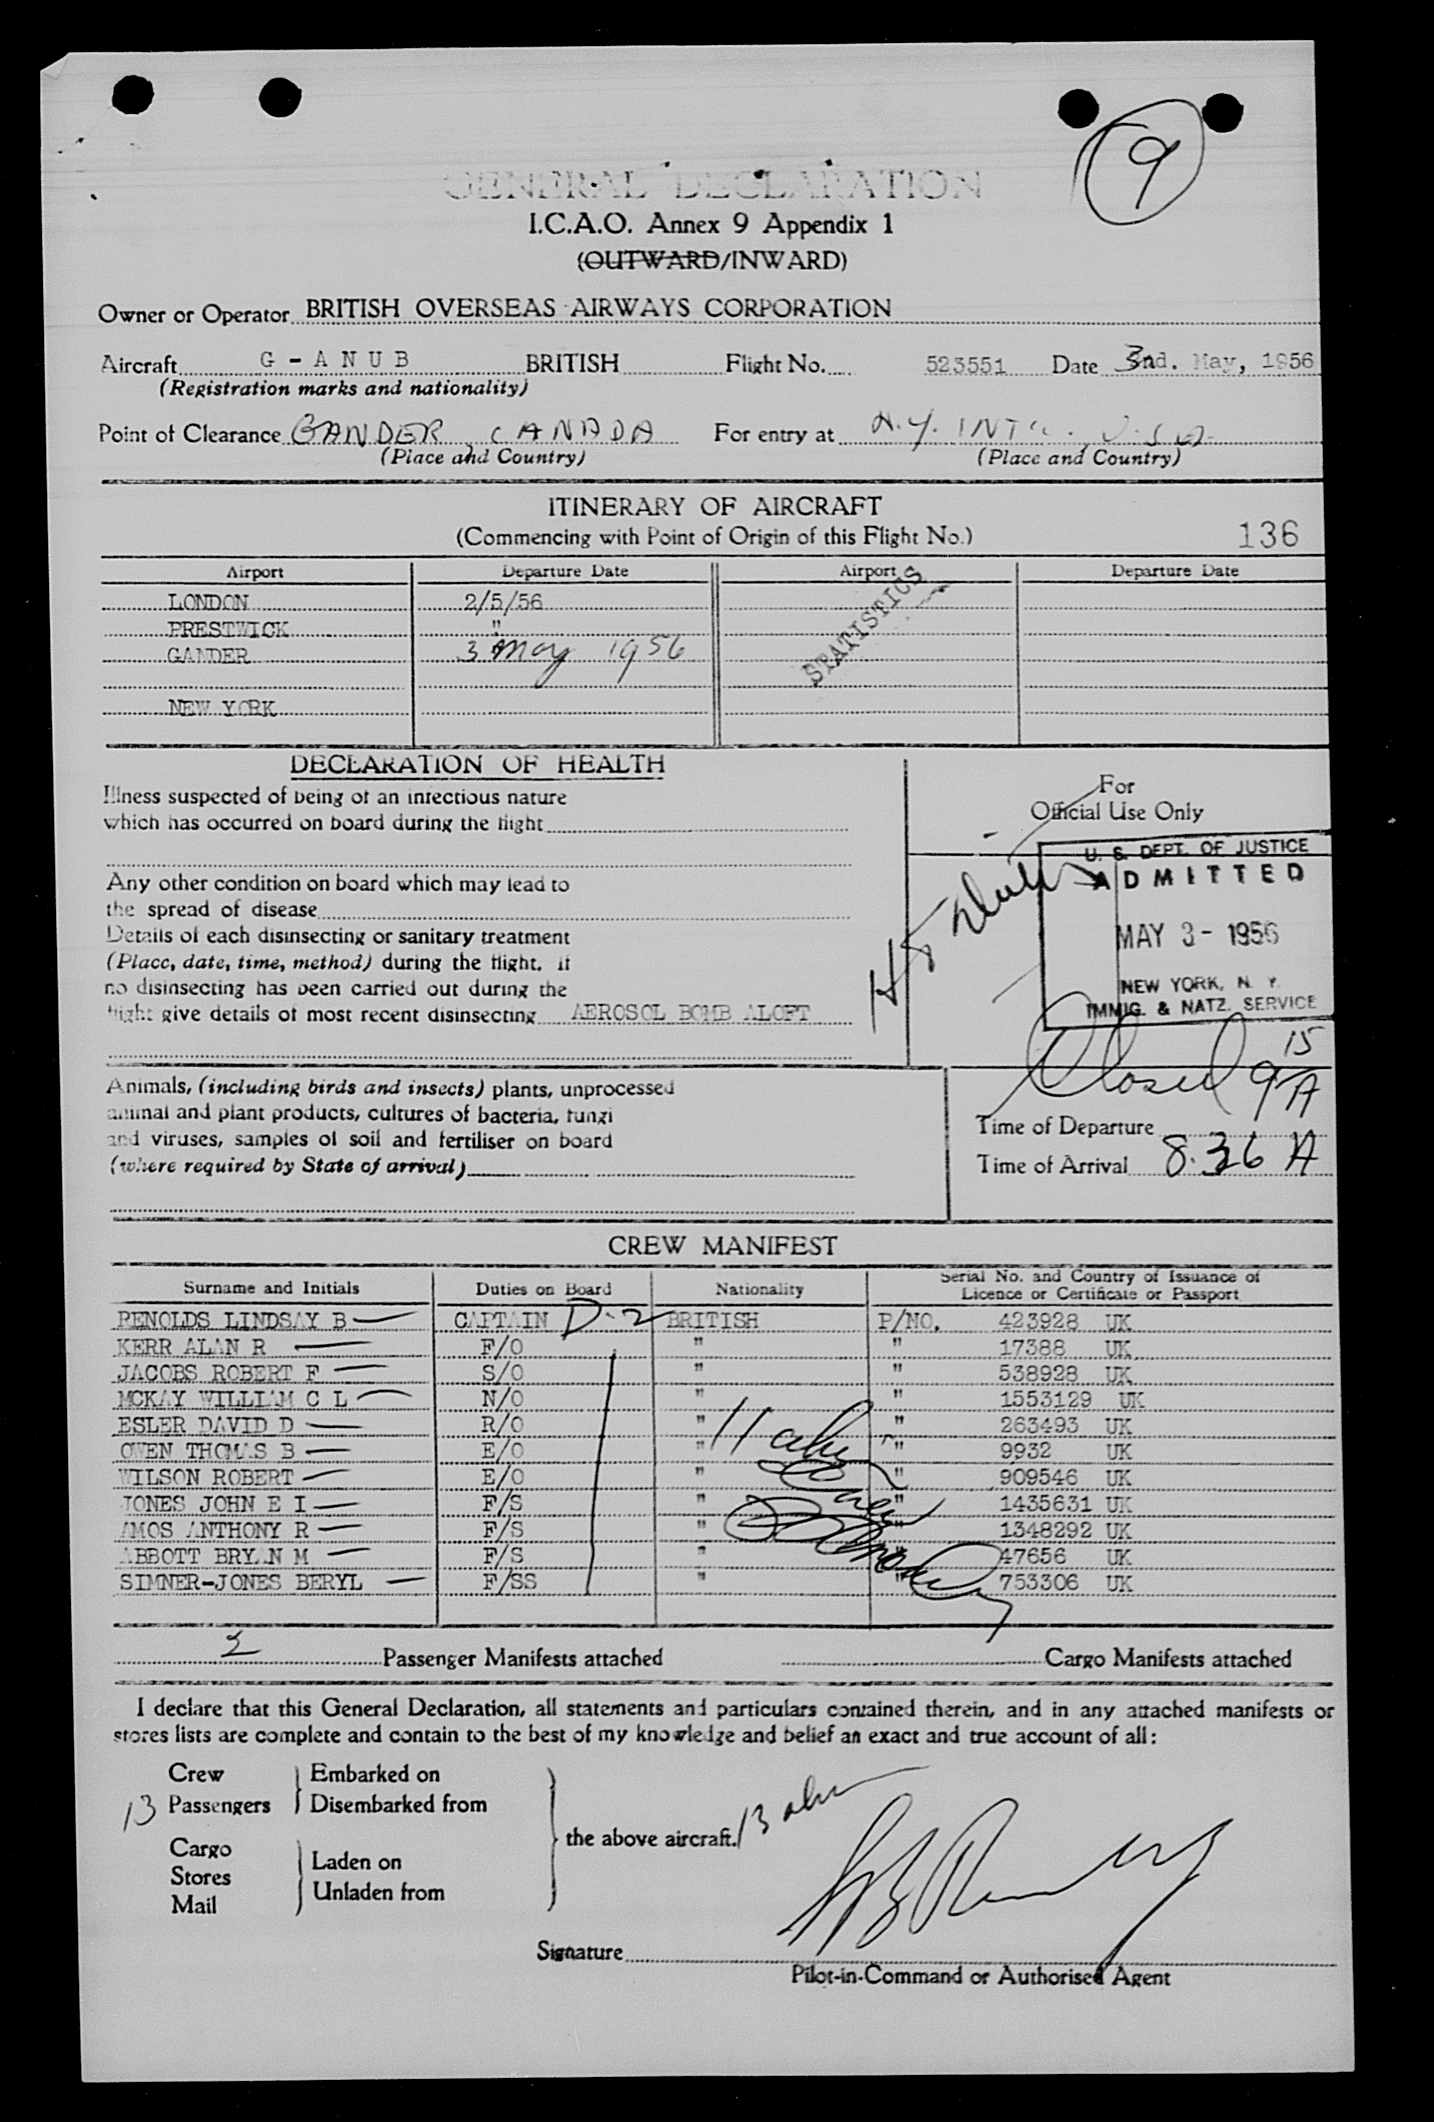 9
GENERAL DECLARATION
I.C.A.O. Annex 9 Appendix 1
(OUTWARD/INWARD)
Owner or Operator BRITISH OVERSEAS AIRWAYS CORPORATION
Aircraft G - A N U B BRITISH Flight No. 523551 Date 3nd. May, 1956
(Registration marks and nationality)
Point of Clearance GANDER, CANADA For entry at N.Y. INTL., U.S.A.
(Place and Country) (Place and Country)
ITINERARY OF AIRCRAFT
(Commencing with Point of Origin of this Flight No.) 136
Airport Departure Date Airport Departure Date
LONDON 2/5/56
PRESTWICK "
GANDER 3 May 1956
STATISTICS
NEW YORK
DECLARATION OF HEALTH
Illness suspected of being of an infectious nature
which has occurred on board during the flight
For
Official Use Only
Any other condition on board which may lead to
the spread of disease
Details of each disinsecting or sanitary treatment
(Place, date, time, method) during the flight. if
no disinsecting has been carried out during the
flight give details of most recent disinsecting AEROSOL BOMB ALOFT
U. S. DEPT. OF JUSTICE
ADMITTED
MAY 3 - 1956
NEW YORK, N. Y.
IMMIG. & NATZ. SERVICE
Closed 9 15 A
Animals, (including birds and insects) plants, unprocessed
animal and plant products, cultures of bacteria, fungi
and viruses, samples of soil and fertiliser on board
(where required by State of arrival)
Time of Departure
Time of Arrival 8.36 A
CREW MANIFEST
Surname and Initials Duties on Board Nationality Serial No. and Country of Issuance of
Licence or Certificate or Passport
RENOLDS LINDSAY B CAPTAIN D-2 BRITISH P/NO. 423928 UK
KERR ALAN R F/O " " 17388 UK
JACOBS ROBERT F S/O " " 538928 UK
MCKAY WILLIAM C L N/O " " 1553129 UK
ESLER DAVID D R/O " " 263493 UK
OWEN THOMAS B E/O " " 9932 UK
WILSON ROBERT E/O " " 909546 UK
JONES JOHN E I F/S " " 1435631 UK
AMOS ANTHONY R F/S " " 1348292 UK
ABBOTT BRYAN M F/S " 47656 UK
SIMNER-JONES BERYL F/SS " " 753306 UK
2 Passenger Manifests attached Cargo Manifests attached
I declare that this General Declaration, all statements and particulars contained therein, and in any attached manifests or
stores lists are complete and contain to the best of my knowledge and belief an exact and true account of all:
Crew Embarked on
13 Passengers Disembarked from
the above aircraft. 13
Cargo
Stores Laden on
Mail Unladen from
Signature
Pilot-in-Command or Authorised Agent